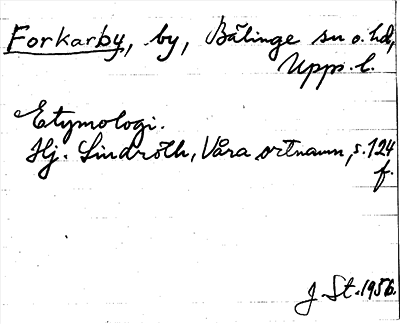 Forkarby, by, Bälinge sn o. hd,
Upp. l.
Etymologi.
Hj. Lindroth, Våra ortnamn, s. 124
f.
J. St. 1956.